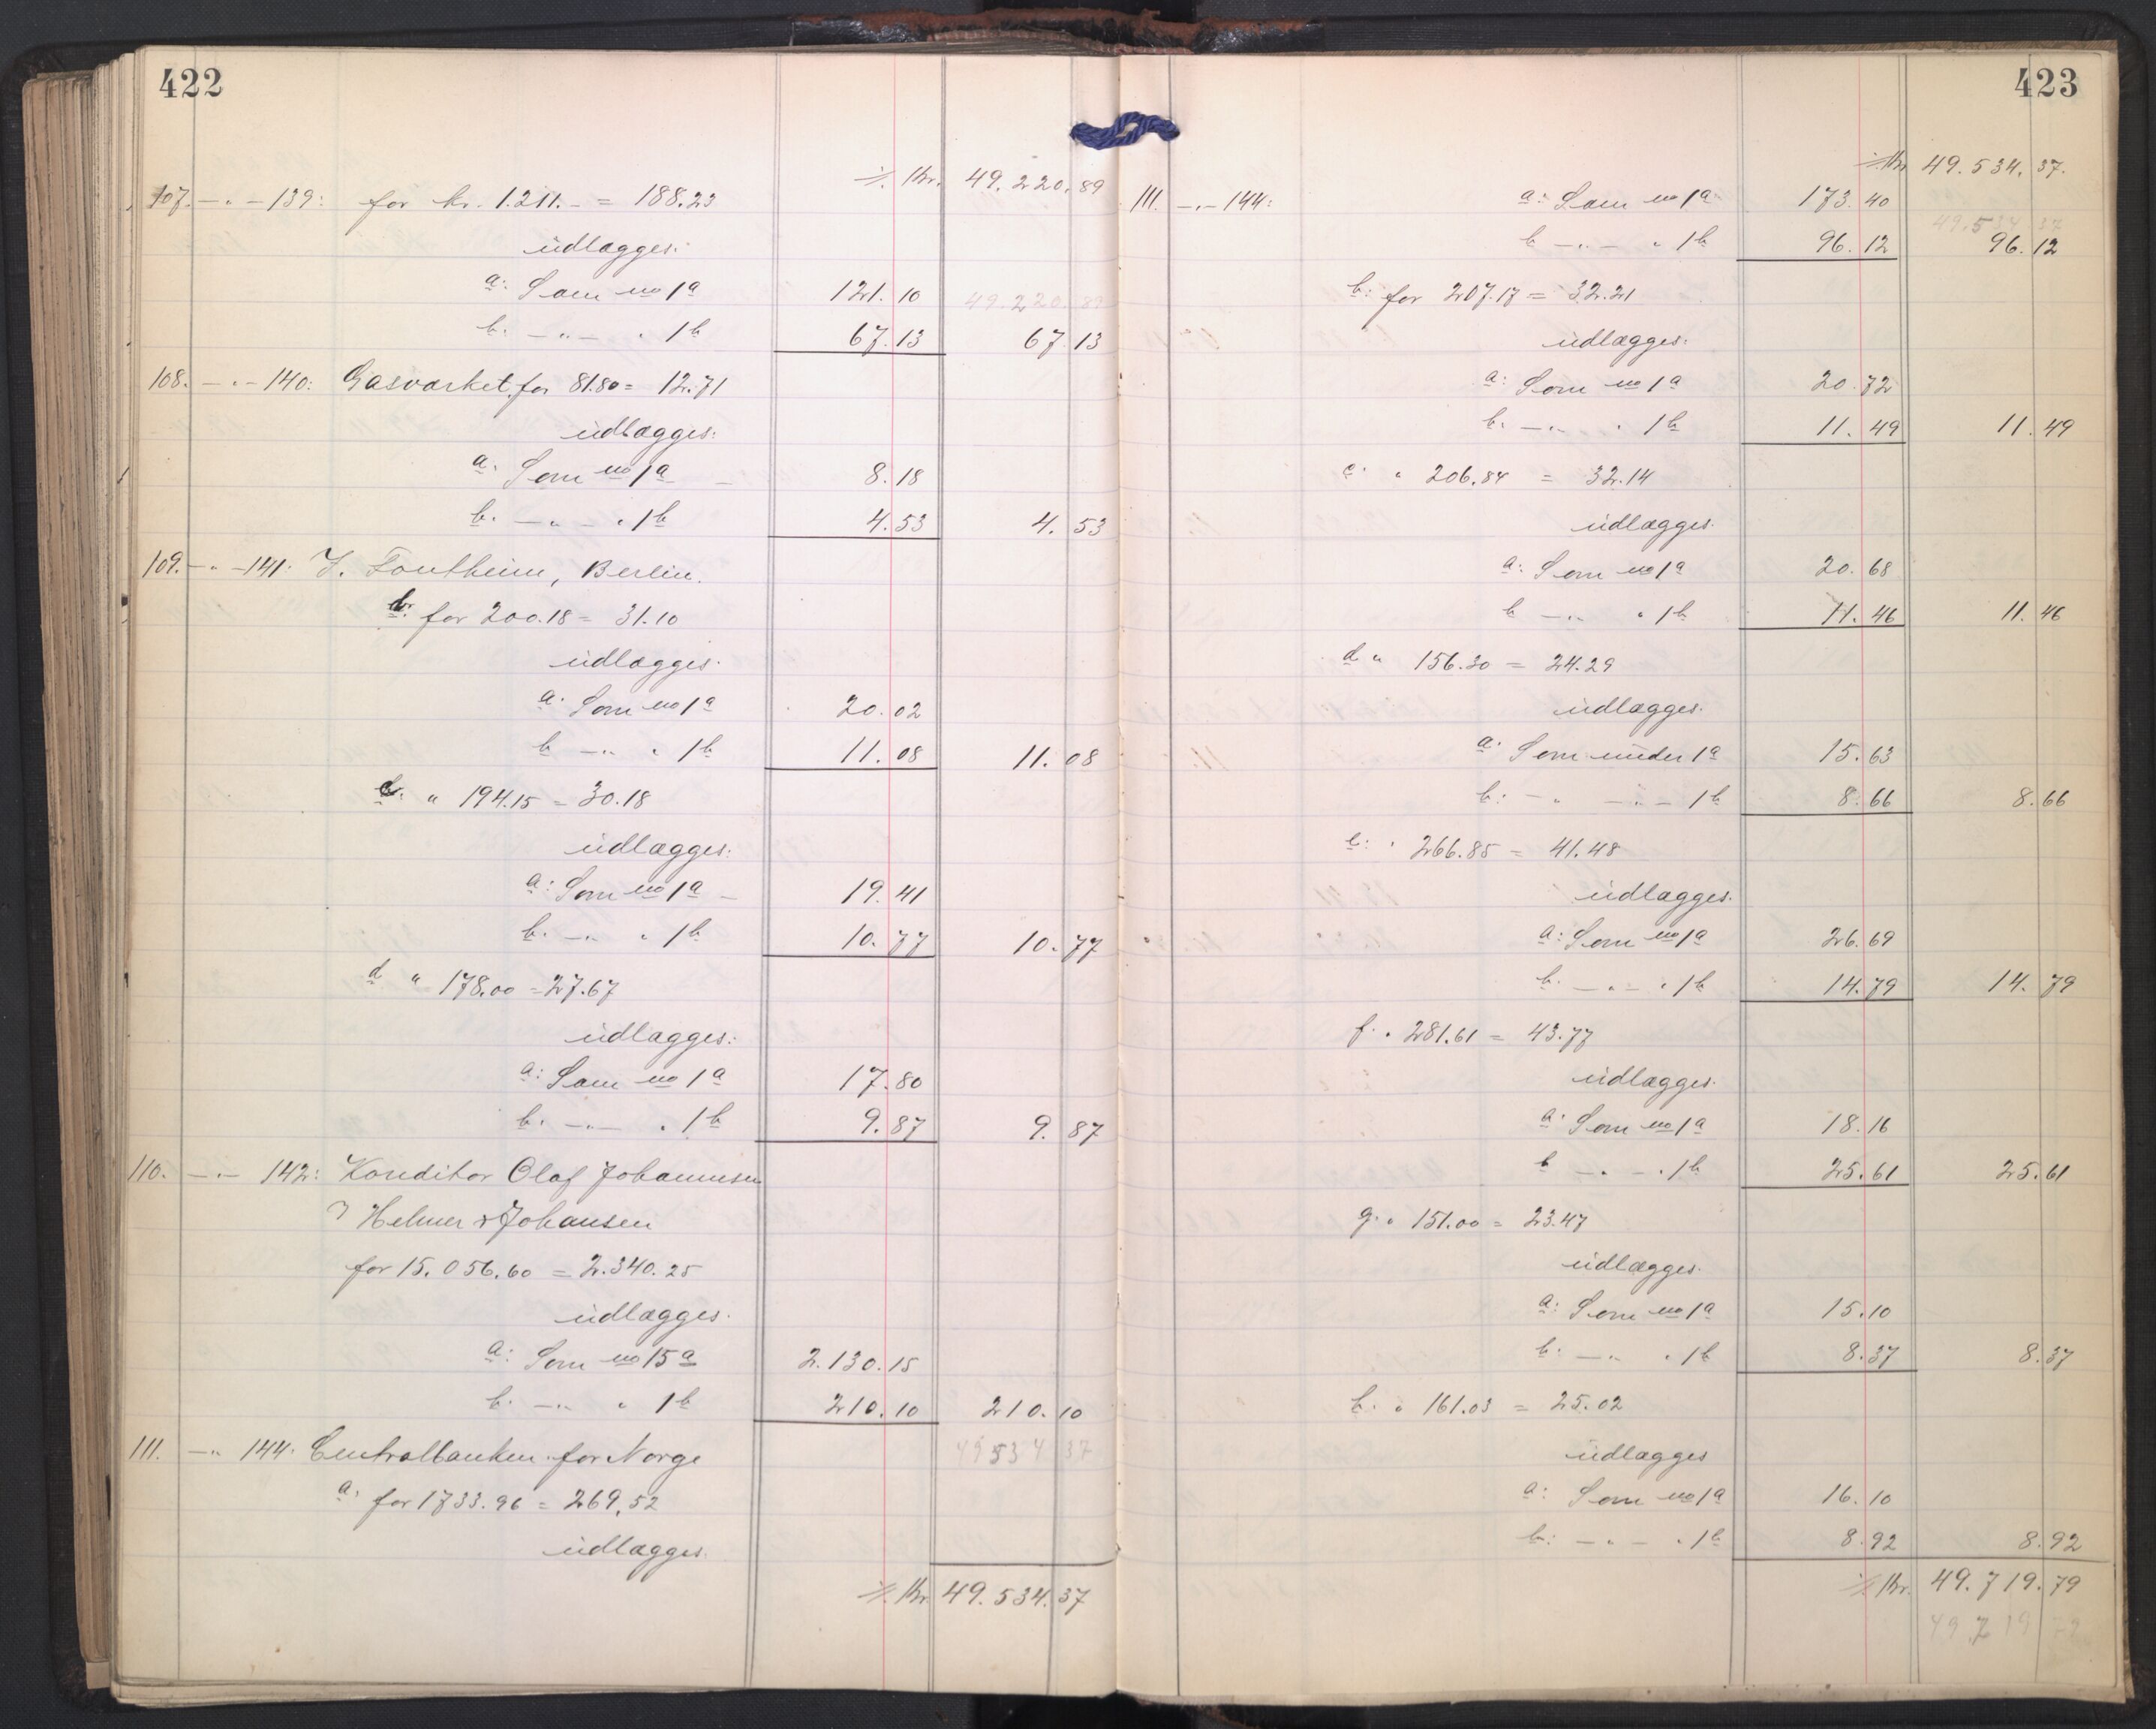 422
⁒ Kr. 49.220.89
107. -„- 139: for kr. 1.211.- = 188.23
udlægges:
a: Som no 1a 121.10 49.220.89
b. -„- „ 1b 67.13 67.13
108. -„- 140: Gasværket, for 81.80 = 12.71
udlægges:
a. Som no 1a 8.18
b. -„- „ 1b 4.53 4.53
109. -„- 141. J. Fontheim, Berlin.
b. for 200.18 = 31.10
udlægges.
a. Som no 1a 20.02
b -„- „ 1b 11.08 11.08
c. „ 194.15 = 30.18
udlægges:
a: Som no 1a 19.41
b. -„- „ 1b 10.77 10.77
d „ 178.00 = 27.67
udlægges:
a: Som no 1a 17.80
b. -„- „ 1b 9.87 9.87
110. -„- 142: Konditor Olaf Johannesen
Helmer & Johansen
for 15.056.60 = 2.340.25
udlægges.
a: Som no 15a 2.130.15
b. -„- „ 1b 210.10 210.10
49534 37
111. -„- 144. Centralbanken for Norge
a. for 1733.96 = 269,52
udlægges.
⁒ Kr 49.534.37
423
⁒ Kr 49.534.37.
111. -„- 144: a: Som no 1a 173.40
49.534 37
b -„- „ 1b 96.12 96.12
b: for 207.17 = 32.21
udlægges:
a: Som no 1a 20.72
b. -„- „ 1b 11.49 11.49
c. „ 206.84 = 32.14
udlægges.
a: Som no 1a 20.68
b -„- „ 1b 11.46 11.46
d „ 156.30 = 24.29
udlægges.
a. Som under 1a 15.63
b: -„- -„- 1b 8.66 8.66
e: „ 266.85 = 41.48
udlægges.
a: Som no 1a 26.69
b. -„- „ 1b 14.79 14.79
f. „ 281.61 = 43.77
udlægges.
a. Som no 1a 18.16
b -„- „ 1b 25.61 25.61
g. „ 151.00 = 23.47
udlægges.
a: Som no 1a 15.10
b. -„- „ 1b 8.37 8.37
h. „ 161.03 = 25.02
udlægges
a: Som no 1a 16.10
b: -„- „ 1b 8.92 8.92
⁒ Kr. 49.719.79
49.719 79